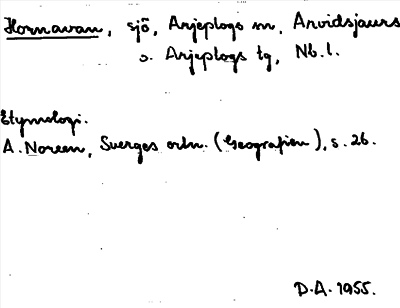 Hornavan, sjö, Arjeplogs sn, Arvidsjaurs
o. Arjeplogs tg, Nb.l.
Etymologi.
A. Noreen, Sverges ortn. (Geografien), s. 26.
D.A. 1955.